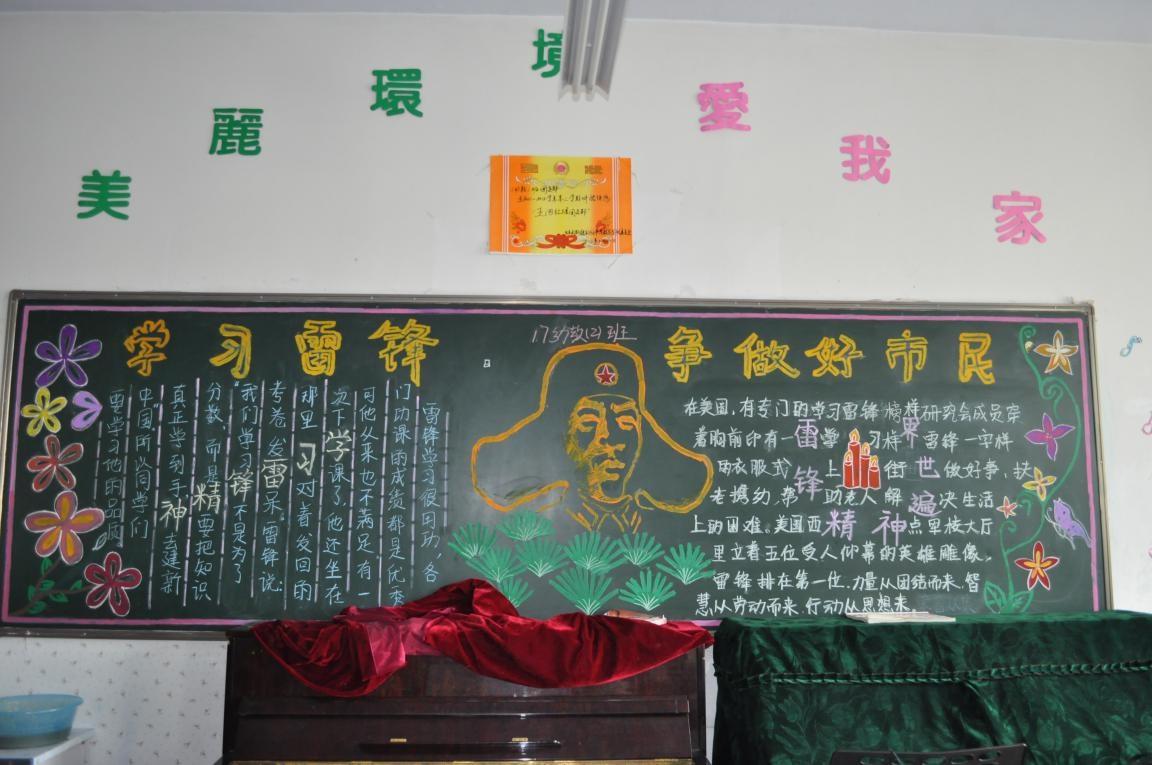 美麗環境愛我家
学习雷锋
17幼教(2)班
争做好市民
雷锋学习很用功,各
门功课的成绩都是优秀
可他父来也不满足有一
次下学课了,他还坐在
那里习对着发回的
考卷发雷呆。雷锋说:
"我们学习锋不是为了
分数而是精要把知识
真正学到手神去建新
中国"所以同学们
要学习他的品质
在美国,有专门的学习雷锋榜样研究会成员穿
着胸前印有雷学习样界雷锋一字样
的衣服式上街世做好事,扶
老携幼,锋助老人解遍决生活
上的困难。美国西精神点军校大厅
里立着五位受人仰慕的英雄雕像。
雷锋排在第一位.力量从团结而来.智
慧从劳动而来.行动从思想来。